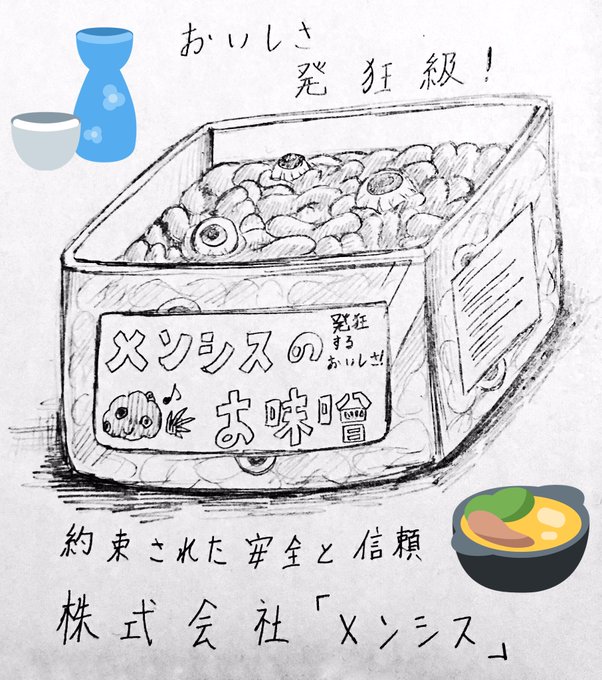 おいしさ
発狂級!
メンシスの
発狂
する
おいしさ!
お味噌
約束された安全と信頼
株式会社「メンシス」